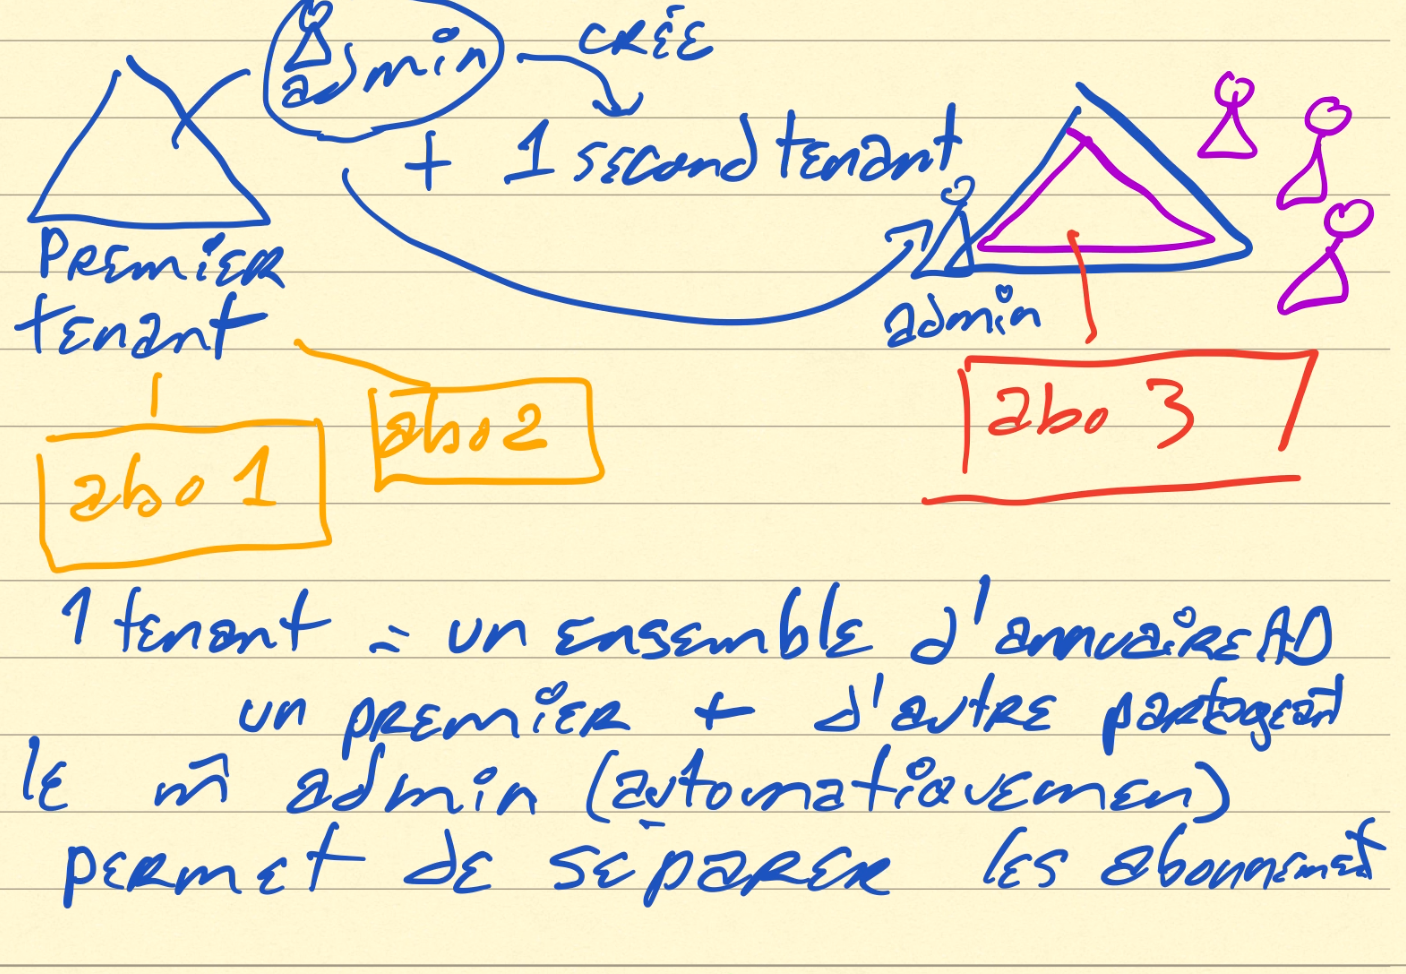 admin
CRÉE
+ 1 second tenant
PREMIER
tenant
admin
abo 1
abo 2
abo 3
1 tenant = un ensemble d'annuaire AD
un premier + d'autre partageant
le m̂ admin (automatiquemen)
permet de séparer les abonnement